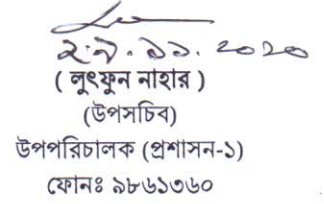 ২.৯.১১.২০২০
( লুৎফুন নাহার )
(উপসচিব)
উপপরিচালক (প্রশাসন-১)
ফোনঃ ৯৮৬১৩৬০